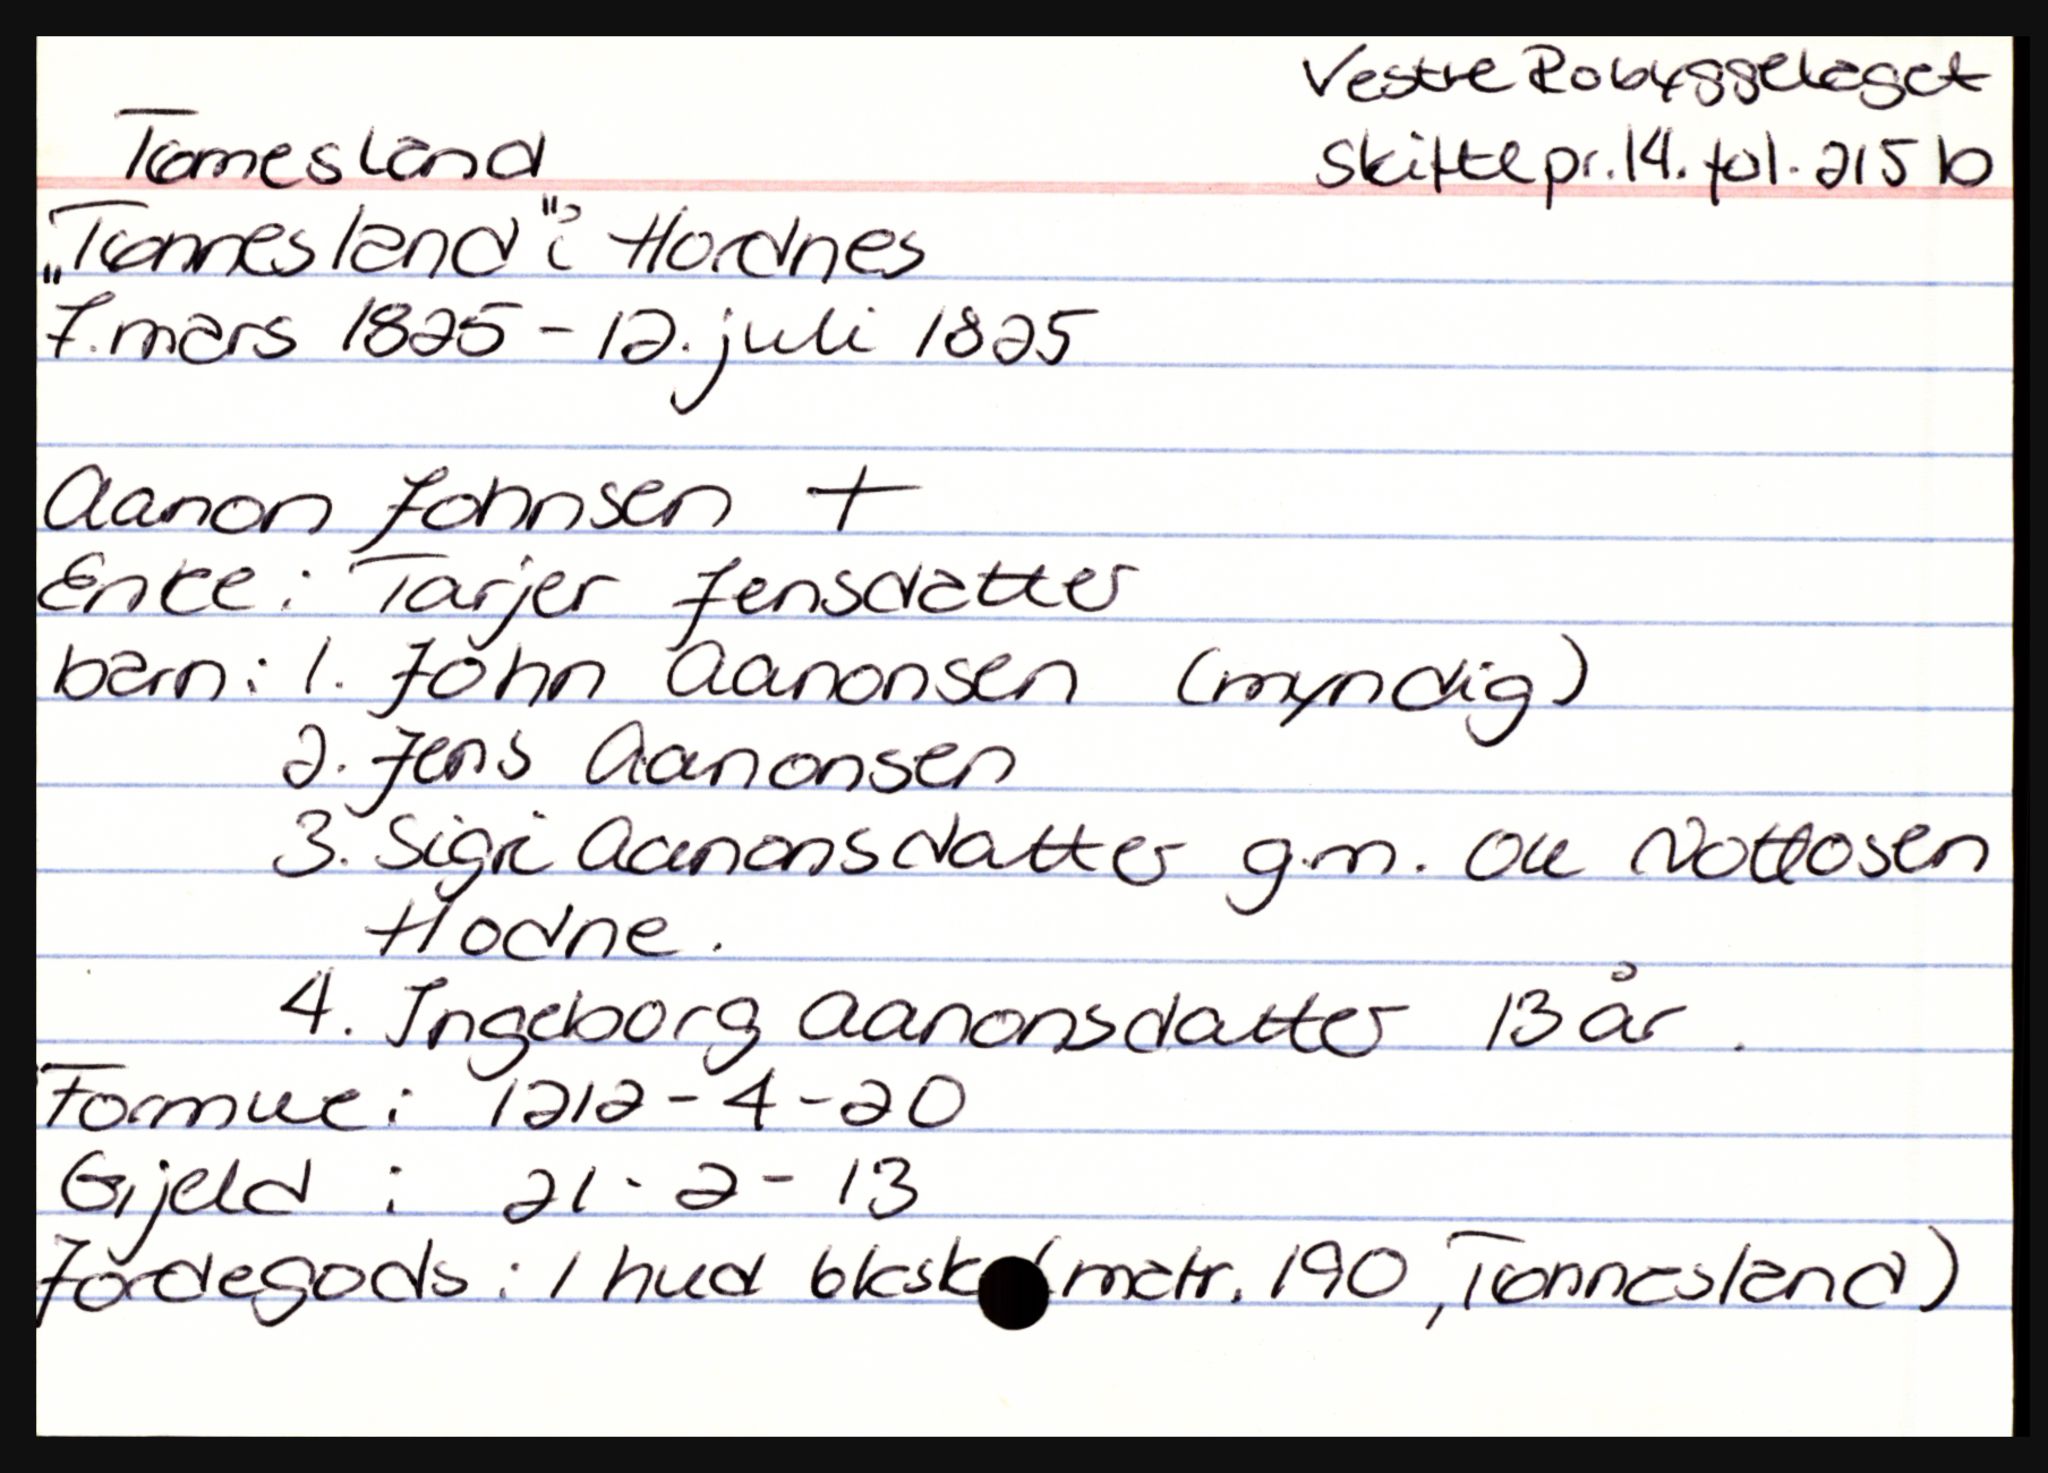 Vestre Robyggelaget
Tømesland Skiftepr. 14. fol. 215 b
„Tønnesland" i Hordnes
7. mars 1825 - 12. juli 1825
Aanon Johnsen +
Enke: Tarjer Jensdatter
barn: 1. John Aanonsen (myndig)
2. Jens Aanonsen
3. Sigri Aanonsdatter g.m. Ole Nottosen
Hodne.
4. Ingeborg Aanonsdatter 13 år.
Formue: 1212-4-20
Gjeld: 21-2-13
Jordegods: 1 hud bksk (matr. 190, Tønnesland)